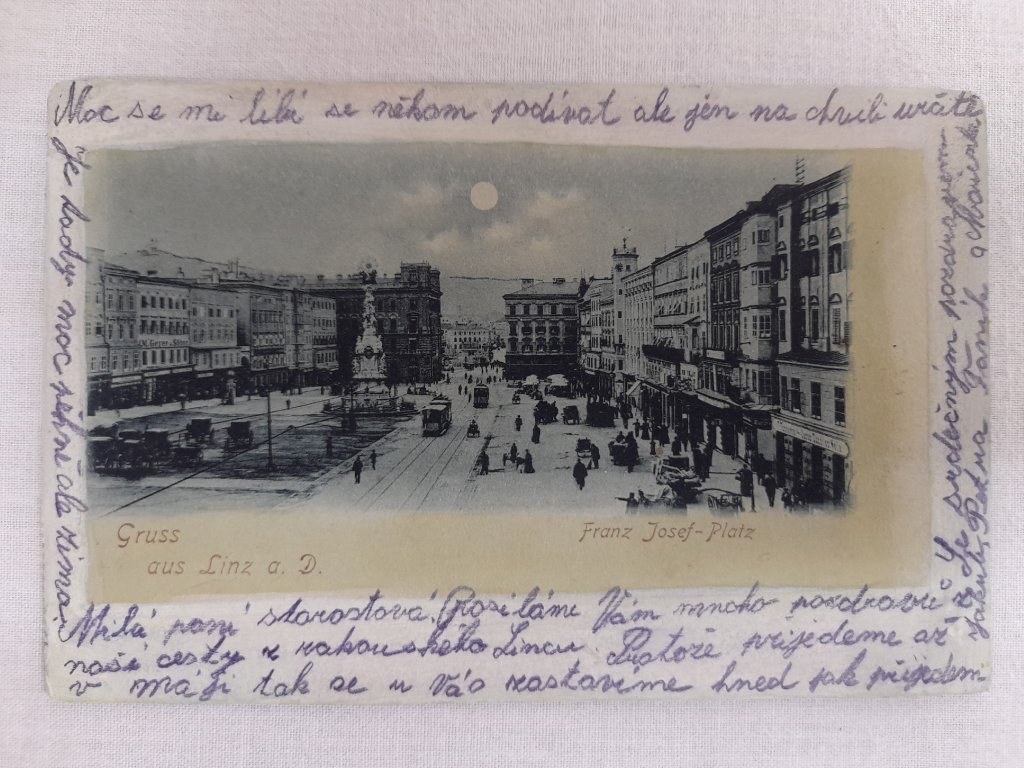 Moc se mi líbí se někam podívat ale jen na chvíli
Je tady moc pěkně ale zima.
J.M. Geyer & Söhne
Gruss
aus Linz a. D.
Franz Josef-Platz
Milá paní starostová. Posíláme Vám mnoho pozdravů z
naší cesty z rakouského Lincu Protože přijedeme až
v máji tak se u Vás zastavíme hned jak přijedem
Se srdečným pozdravem
Petra a